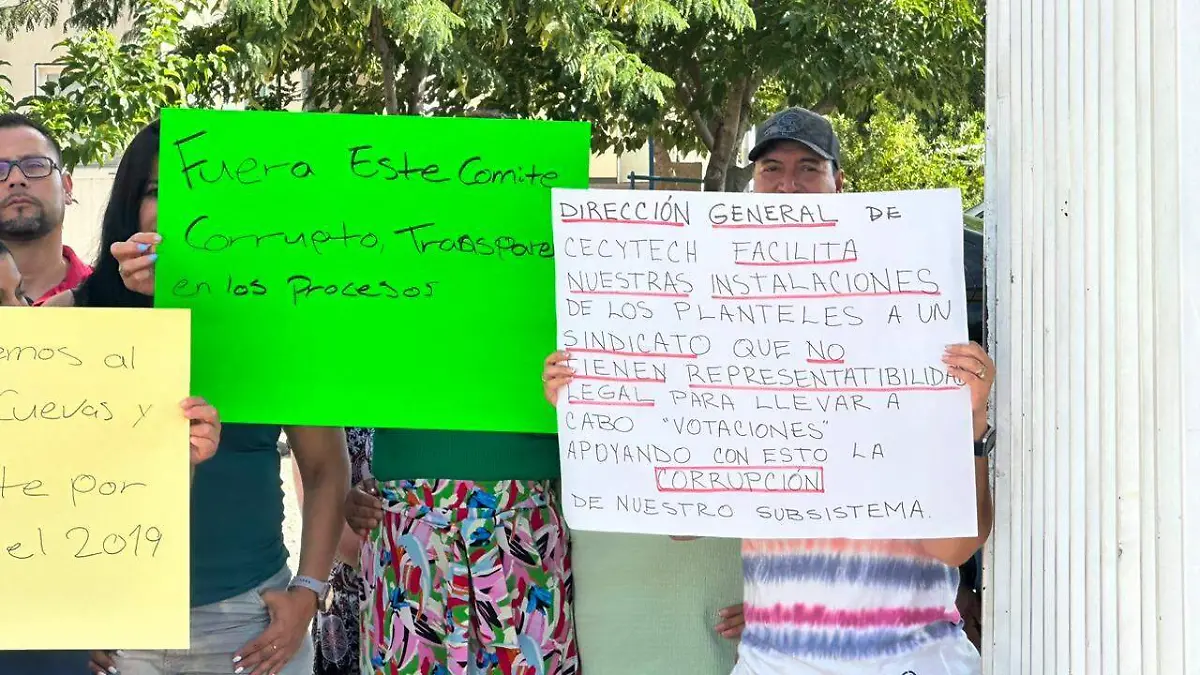 Fuera Este Comite
Corrupto, Transparen
en los Procesos
emos al
Cuevas y
te por
el 2019
DIRECCIÓN GENERAL DE
CECYTECH FACILITA
NUESTRAS INSTALACIONES
DE LOS PLANTELES A UN
SINDICATO QUE NO
TIENEN REPRESENTATIBILIDA
LEGAL PARA LLEVAR A
CABO "VOTACIONES"
APOYANDO CON ESTO LA
CORRUPCIÓN
DE NUESTRO SUBSISTEMA.